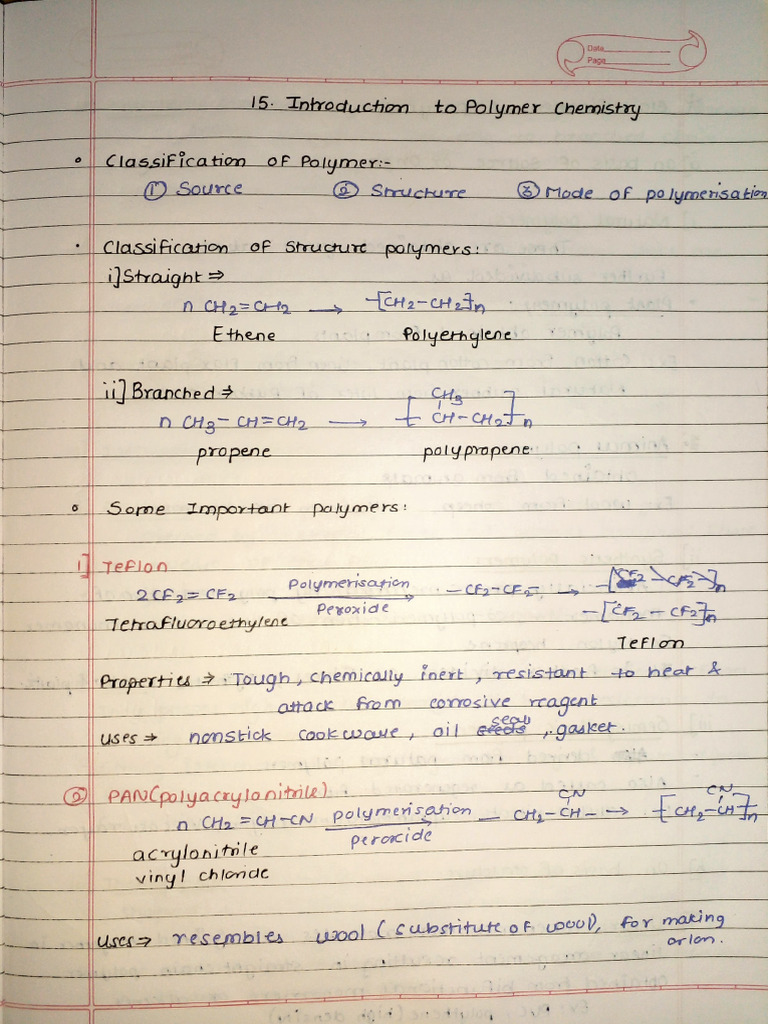 Date
Page
15. Introduction to Polymer Chemistry
Classification of Polymer:-
① Source ② Structure ③ Mode of polymerisation
Classification of structure polymers:
i] Straight ⇒
n CH2=CH2 → -[CH2-CH2]n
Ethene Polyethylene
ii] Branched ⇒
CH3
n CH3-CH=CH2 → -[CH-CH2]n
propene polypropene
Some Important polymers:
1] Teflon
2CF2=CF2 Polymerisation Peroxide → -CF2-CF2- → -[CF2-CF2-]n
-[CF2-CF2]n
Tetrafluoroethylene
Teflon
Properties ⇒ Tough, chemically inert, resistant to heat &
attack from corrosive reagent
uses ⇒ nonstick cookware, oil seal, gasket.
② PAN(polyacrylonitrile)
CN CN
n CH2=CH-CN polymerisation peroxide → - CH2-CH- → -[CH2-CH]n
acrylonitrile
vinyl chloride
uses ⇒ resembles wool (substitute of wool), for making
orlon.